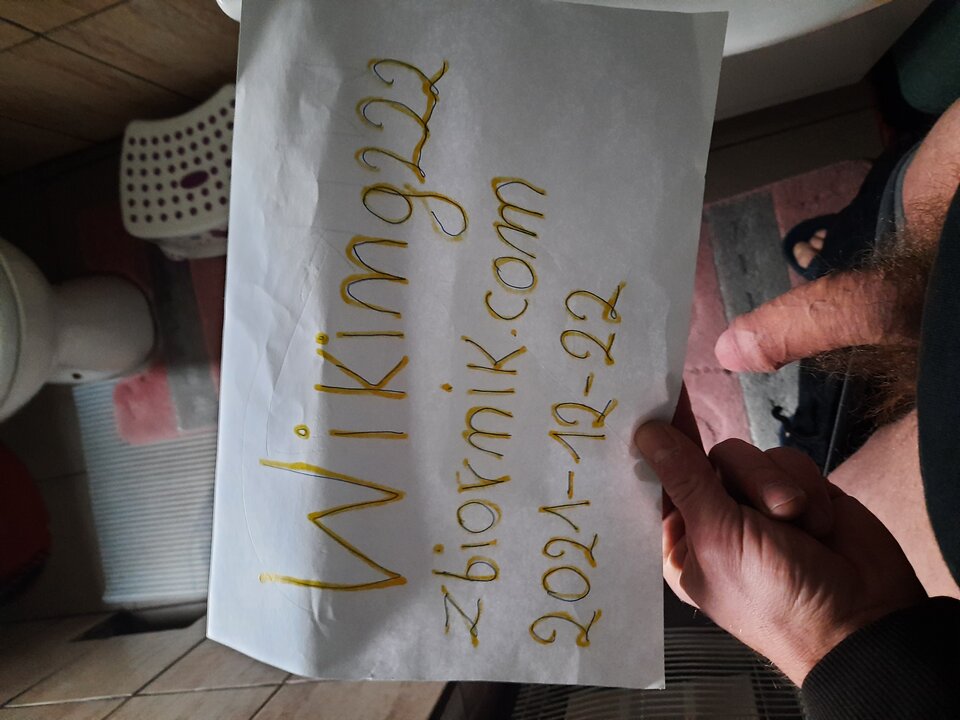 Wiking222
zbiornik.com
2021-12-22